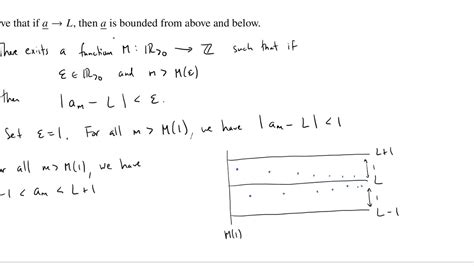 rve that if a → L, then a is bounded from above and below.
There exists a function M: ℝ>0 → ℤ such that if
ε ∈ ℝ>0 and m > M(ε)
then |a_m − L| < ε.
Set ε=1. For all m > M(1), we have |a_m − L| < 1
r all m > M(1), we have
−1 < a_m < L+1
L+1
1
L
1
L−1
M(1)